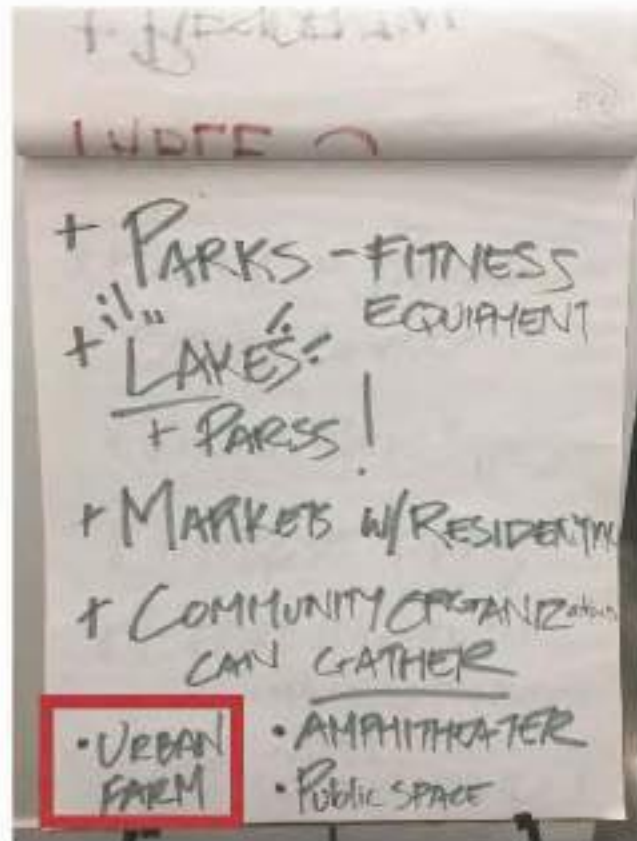 + PARKS - FITNESS
EQUIPMENT
+ LAKES
+ PARSS!
+ MARKETS W/RESIDENTIAL
+ COMMUNITY ORGANIZations
CAN GATHER
• URBAN
FARM
• AMPHITHEATER
• Public SPACE